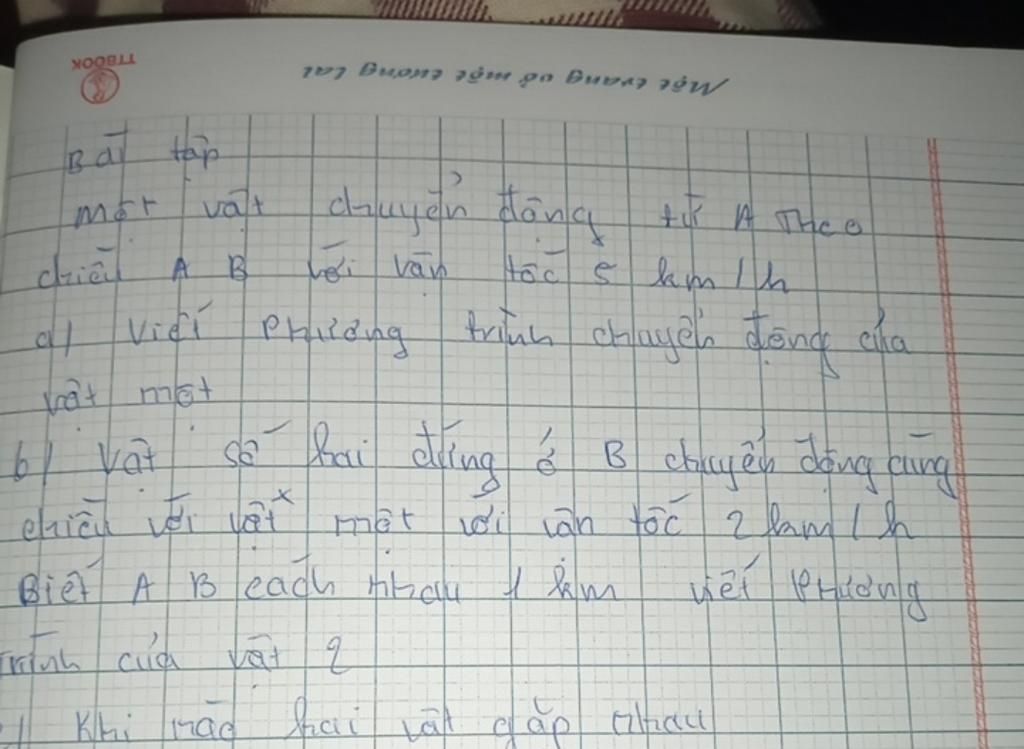 TTBOOK
Một trang vở một tương lai
Bài tập
một vật chuyển động từ A Theo
chiều A B với vận tốc 5 km/h
a/ viết Phương trình chuyển động của
vật một
b/ Vật số hai đứng ở B chuyển động cùng
chiều với vật một với vận tốc 2 km/h
Biết A B cách nhau 1 km viết Phương
trình của vật 2
Khi nào hai vật gặp nhau